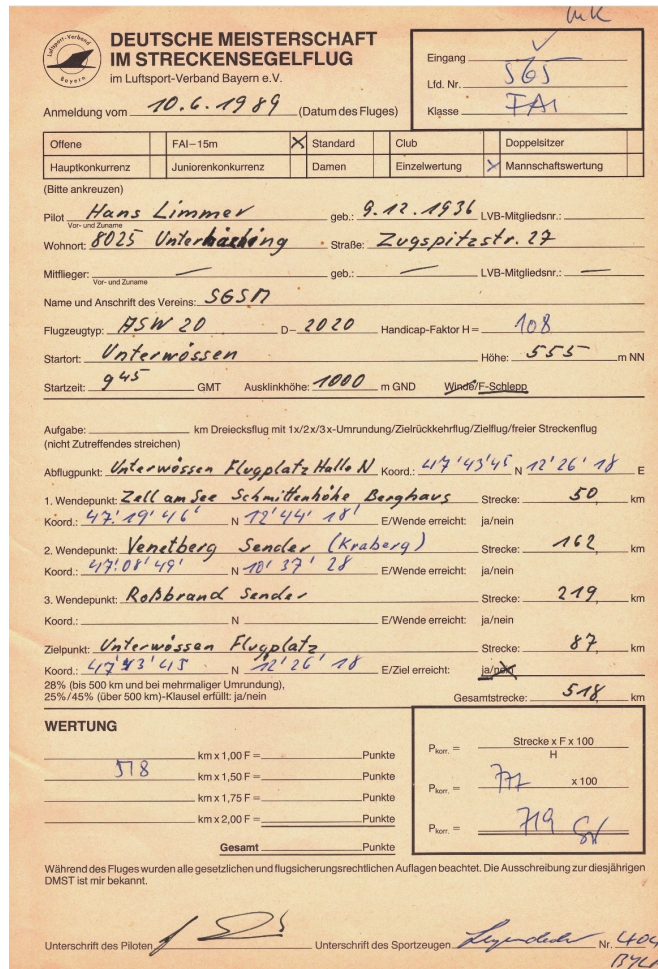 Luftsport-Verband Bayern
DEUTSCHE MEISTERSCHAFT
IM STRECKENSEGELFLUG
im Luftsport-Verband Bayern e.V.
Anmeldung vom 10.6.1989 (Datum des Fluges)
MK
Eingang ✓
Lfd. Nr. 565
Klasse FAI
Offene FAI–15m X Standard Club Doppelsitzer
Hauptkonkurrenz Juniorenkonkurrenz Damen Einzelwertung X Mannschaftswertung
(Bitte ankreuzen)
Pilot Hans Limmer geb.: 9.12.1936 LVB-Mitgliedsnr.:
Vor- und Zuname
Wohnort: 8025 Unterhaching Straße: Zugspitzstr. 27
Mitflieger: — geb.: — LVB-Mitgliedsnr.: —
Vor- und Zuname
Name und Anschrift des Vereins: SGSM
Flugzeugtyp: ASW 20 D– 2020 Handicap-Faktor H = 108
Startort: Unterwössen Höhe: 555 m NN
Startzeit: 9 45 GMT Ausklinkhöhe: 1000 m GND Winde/F-Schlepp
Aufgabe: km Dreiecksflug mit 1x/2x/3x-Umrundung/Zielrückkehrflug/Zielflug/freier Streckenflug
(nicht Zutreffendes streichen)
Abflugpunkt: Unterwössen Flugplatz Halle N Koord.: 47'43'45 N 12'26'18 E
1. Wendepunkt: Zell am See Schmittenhöhe Berghaus Strecke: 50, km
Koord.: 47'19'46' N 12'44'18' E/Wende erreicht: ja/nein
2. Wendepunkt: Venetberg Sender (Kraberg) Strecke: 162, km
Koord.: 47'08'49' N 10'37'28 E/Wende erreicht: ja/nein
3. Wendepunkt: Roßbrand Sender Strecke: 219, km
Koord.: N E/Wende erreicht: ja/nein
Zielpunkt: Unterwössen Flugplatz Strecke: 87, km
Koord.: 47'43'45 N 12'26'18 E/Ziel erreicht: ja/nein
28% (bis 500 km und bei mehrmaliger Umrundung),
25%/45% (über 500 km)-Klausel erfüllt: ja/nein Gesamtstrecke: 518, km
WERTUNG
km x 1,00 F = Punkte
518 km x 1,50 F = Punkte
km x 1,75 F = Punkte
km x 2,00 F = Punkte
Gesamt Punkte
Pkorr. = Strecke x F x 100
H
Pkorr. = 777 x 100
Pkorr. = 719
Während des Fluges wurden alle gesetzlichen und flugsicherungsrechtlichen Auflagen beachtet. Die Ausschreibung zur diesjährigen
DMST ist mir bekannt.
Unterschrift des Piloten Unterschrift des Sportzeugen Nr. 404